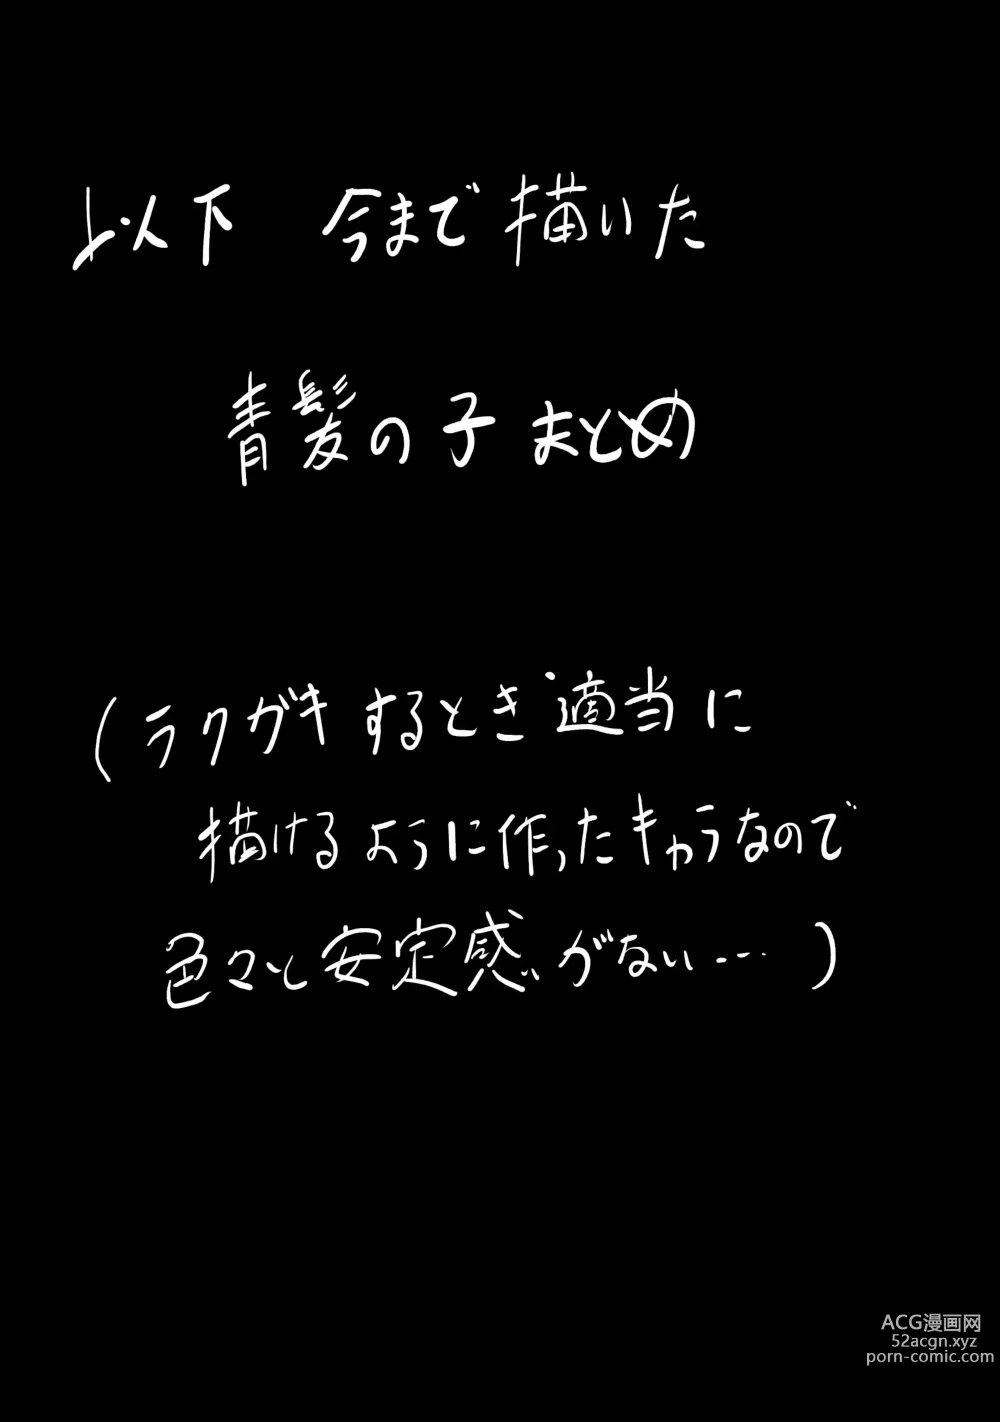 以下 今まで描いた
青髪の子まとめ
(ラクガキするとき適当に
描けるように作ったキャラなので
色々と安定感がない…)
ACG漫画网
52acgn.xyz
porn-comic.com